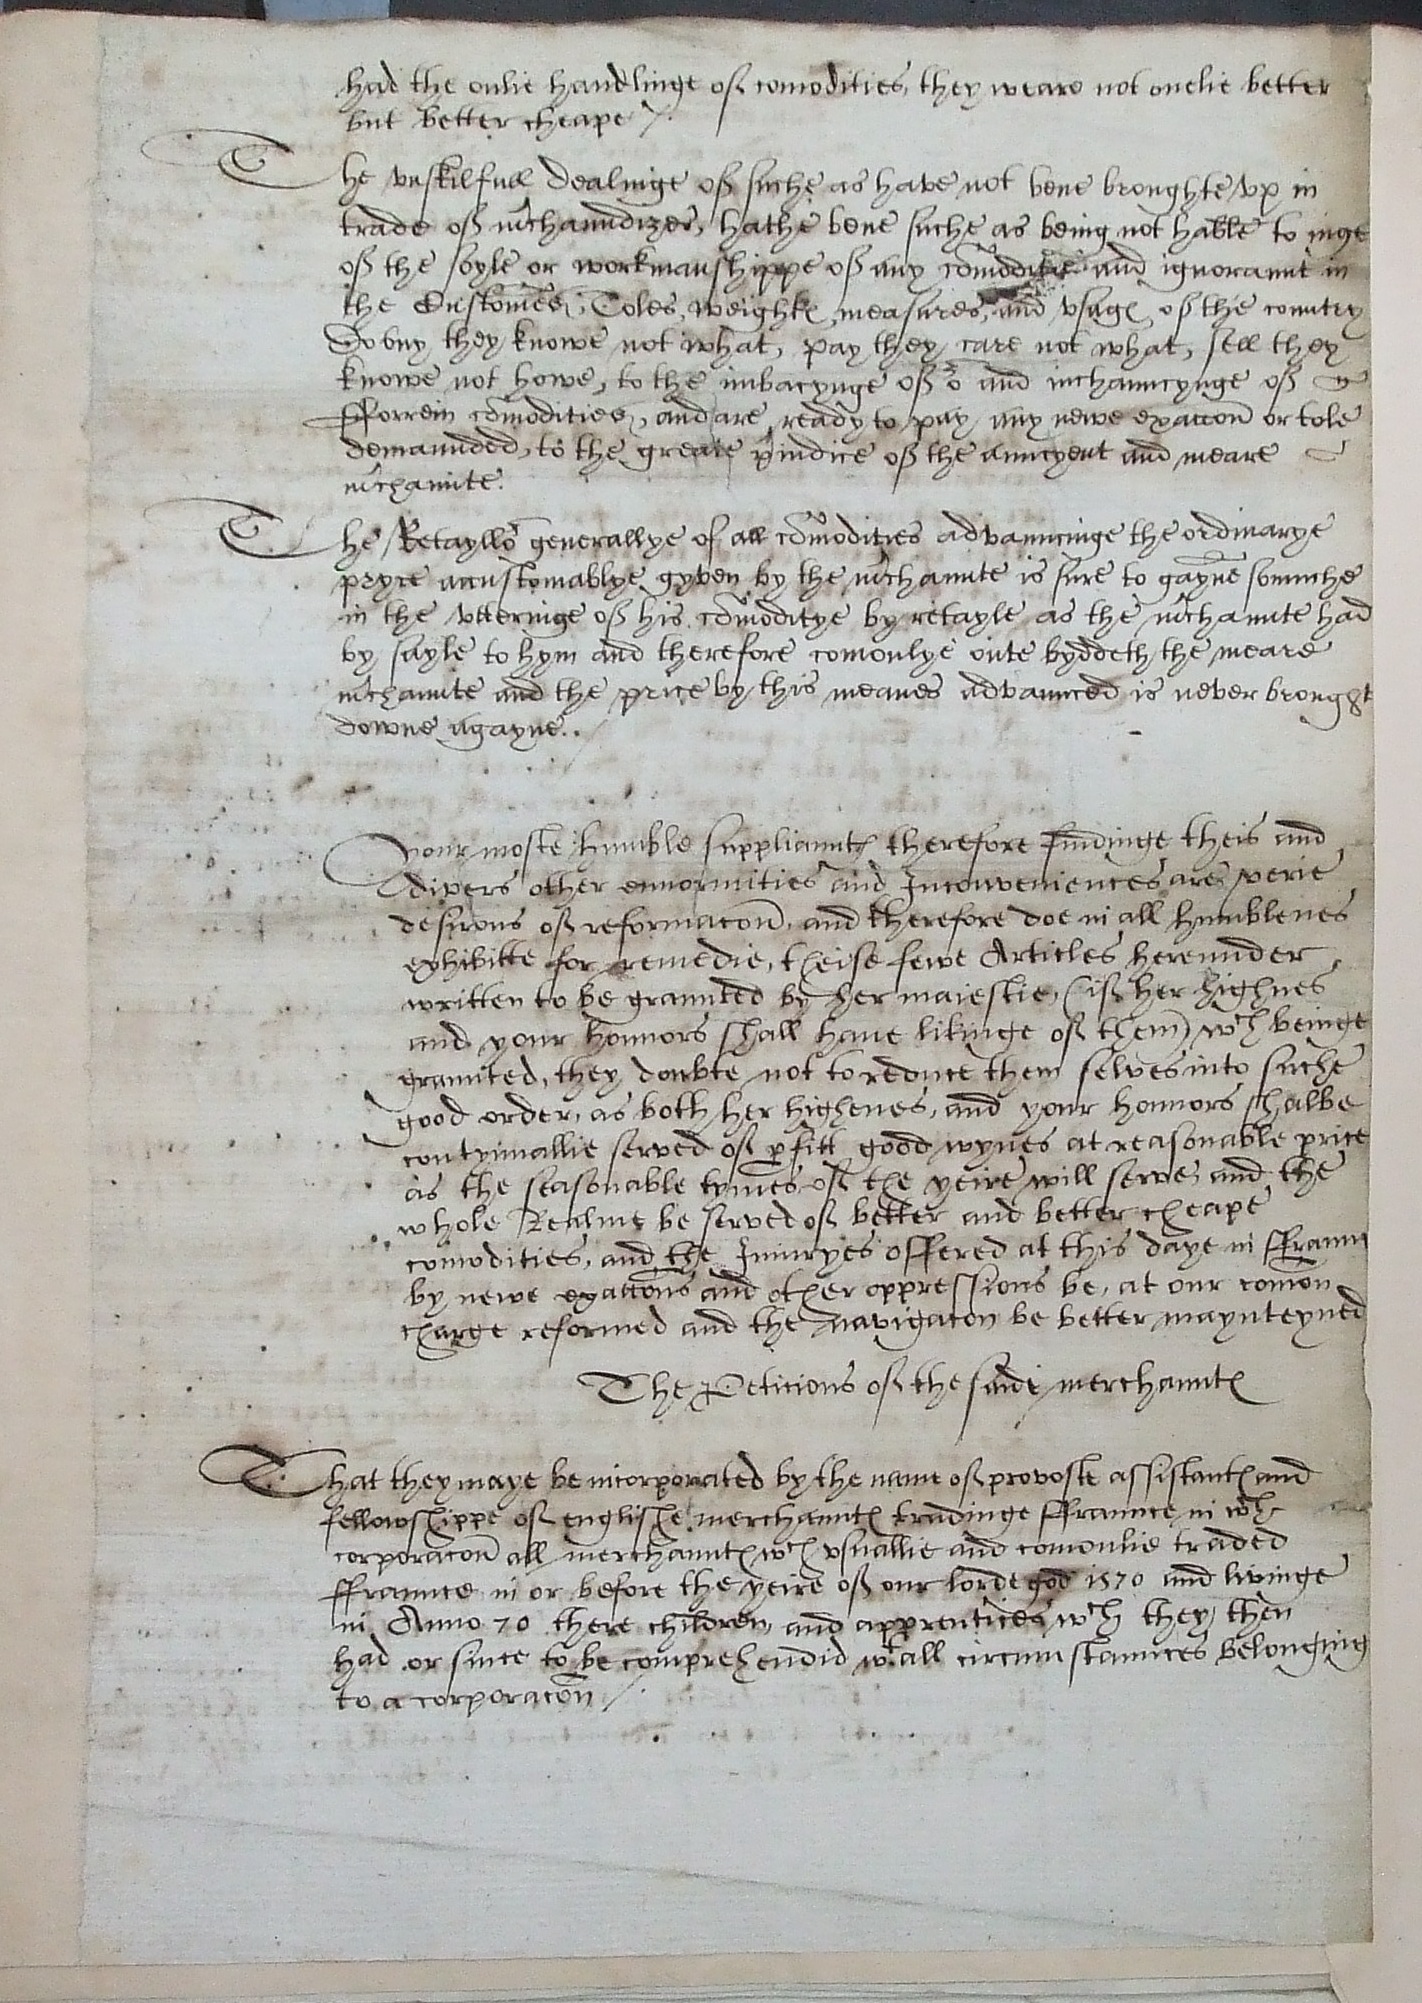 had the onlie handlinge of comodities, they weare not onelie better
but better cheape /.
The vnskilfull dealinge of suche as have not bene broughte vp in
trade of mrchaundizes, hathe bene suche as being not hable to iuge
of the soyle or workmanshippe of any comoditie and ignoraunt in
the Customes, Toles, weightes, measures, and vsages of the country
Do buy they knowe not what, pay they care not what, sell they
knowe not howe, to the imbacynge of or and inhauncynge of
fforrein comodities, and are ready to pay any newe exaccon or tole
demaunded, to the greate piudice of the auncyent and meare
mrchaunte.
The Retayllor generallye of all comodities advauncinge the ordinarye
pryce accustomablye gyven by the mrchaunte is sure to gayne somuche
in the vtteringe of his comoditye by retayle as the mrchaunte had
by sayle to hym and therefore comonlye oute byddeth the meare
mrchaunte and the price by this meanes advaunced is never brought
downe agayne..
Your moste humble suppliauntes therefore findinge theis and
divers other ennormities and Inconveniences are verie
desirous of reformacon, and therefore doe in all humblenes
exhibitte for remedie, theise fewe Articles hereunder
written to be graunted by her maiestie, (if her highnes
and your honnors shall haue likinge of them) wch beinge
graunted, they doubte not to reduce them selves into suche
good order, as both her highenes, and your honnors shalbe
contynuallie served of pfitt good wynes at reasonable price
as the seasonable tymes of the yeire will serve, and the
whole Realme be served of better and better cheape
comodities, and the Iniuryes offered at this daye in ffraun
by newe exaccons and other oppressions be, at our comon
charge reformed and the navigacon be better maynteyned
The Peticions of the saide merchauntes
That they maye be incorporated by the name of provoste assistantes and
fellowshippe of englishe merchauntes tradinge ffraunce in wch
corporacon all merchauntes wch vsuallie and comonlie traded
ffraunce in or before the yeire of our lorde god 1570 and livinge
in Anno 70 there children, and apprentices wch they then
had or since to be comprehendid wt all circumstaunces belonging
to a corporacon /.